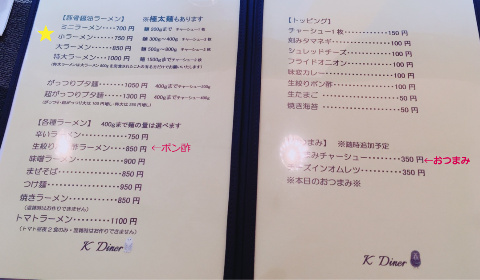 【豚骨醤油ラーメン】 ※極太麺もあります
ミニラーメン････700円 麺 200gまで チャーシュー1枚
小ラーメン････750円 麺 300g～400g チャーシュー2枚
大ラーメン････850円 麺 500g～800g チャーシュー2枚
特大ラーメン････1000円 麺 1500gまでチャーシュー2枚
がっつりブタ麺････1050円 400gまで
超がっつりブタ麺････1300円 400gまで
【各種ラーメン】 400gまで麺の量は選べます
辛いラーメン････････750円
生絞り 酢ラーメン････850円 ←ポン酢
味噌ラーメン････････900円
まぜそば････････････850円
つけ麺･･････････････950円
焼きラーメン････････850円
トマトラーメン･･････1100円
K Diner
【トッピング】
チャーシュー1枚･･････････150円
刻みタマネギ････････････100円
シュレッドチーズ････････100円
フライドオニオン････････100円
味変カレー･･････････････100円
生絞りポン酢････････････100円
生たまご････････････････50円
焼き海苔････････････････50円
つまみ】 ※随時追加予定
みチャーシュー････････350円←おつまみ
ズインオムレツ････････350円
※本日のおつまみ※
K Diner